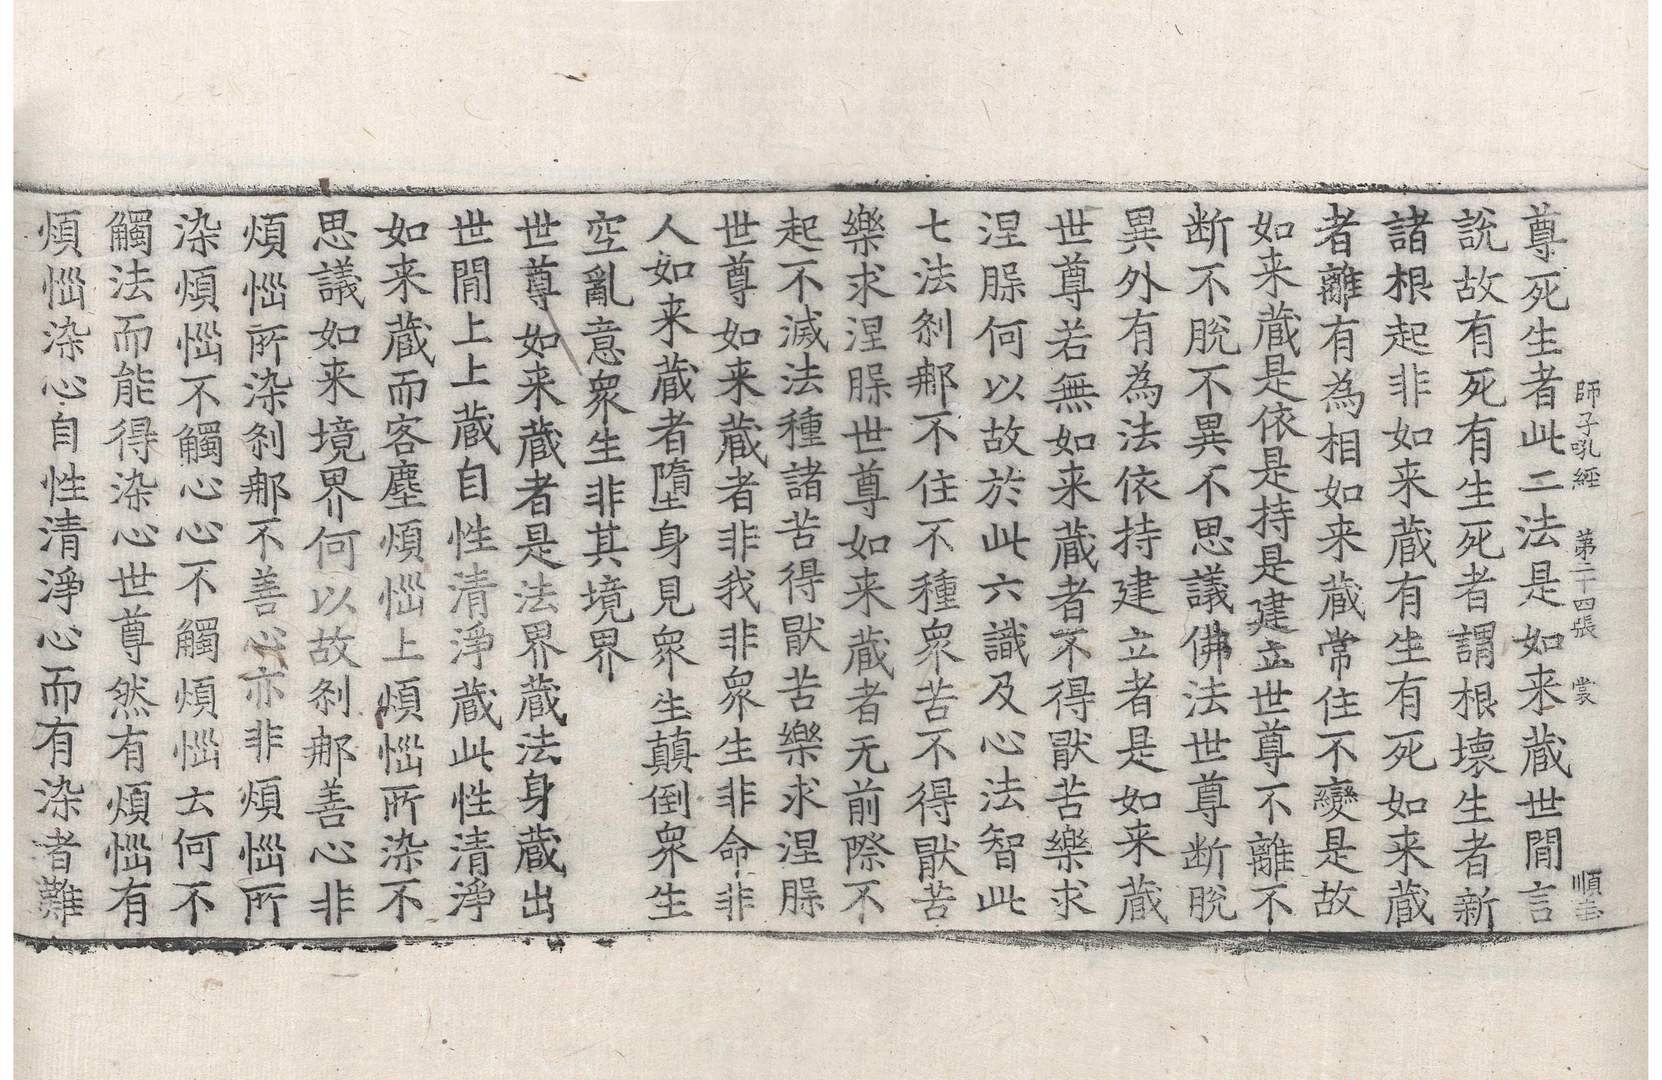 師子吼經 第二十四張 裳 順圭
尊死生者此二法是如来蔵世間言
說故有死有生死者謂根壞生者新
諸根起非如来蔵有生有死如来蔵
者離有為相如来蔵常住不變是故
如来蔵是依是持是建立世尊不離不
断不脫不異不思議佛法世尊断脫
異外有為法依持建立者是如来蔵
世尊若無如来蔵者不得猒苦樂求
涅槃何以故於此六識及心法智此
七法刹那不住不種眾苦不得猒苦
樂求涅槃世尊如来蔵者无前際不
起不滅法種諸苦得猒苦樂求涅槃
世尊如来蔵者非我非眾生非命非
人如来蔵者墮身見眾生顛倒眾生
空亂意眾生非其境界
世尊如来蔵者是法界蔵法身蔵出
世間上上蔵自性清淨蔵此性清淨
如来蔵而客塵煩惱上煩惱所染不
思議如来境界何以故刹那善心非
煩惱所染刹那不善心亦非煩惱所
染煩惱不觸心心不觸煩惱云何不
觸法而能得染心世尊然有煩惱有
煩惱染心自性清淨心而有染者難